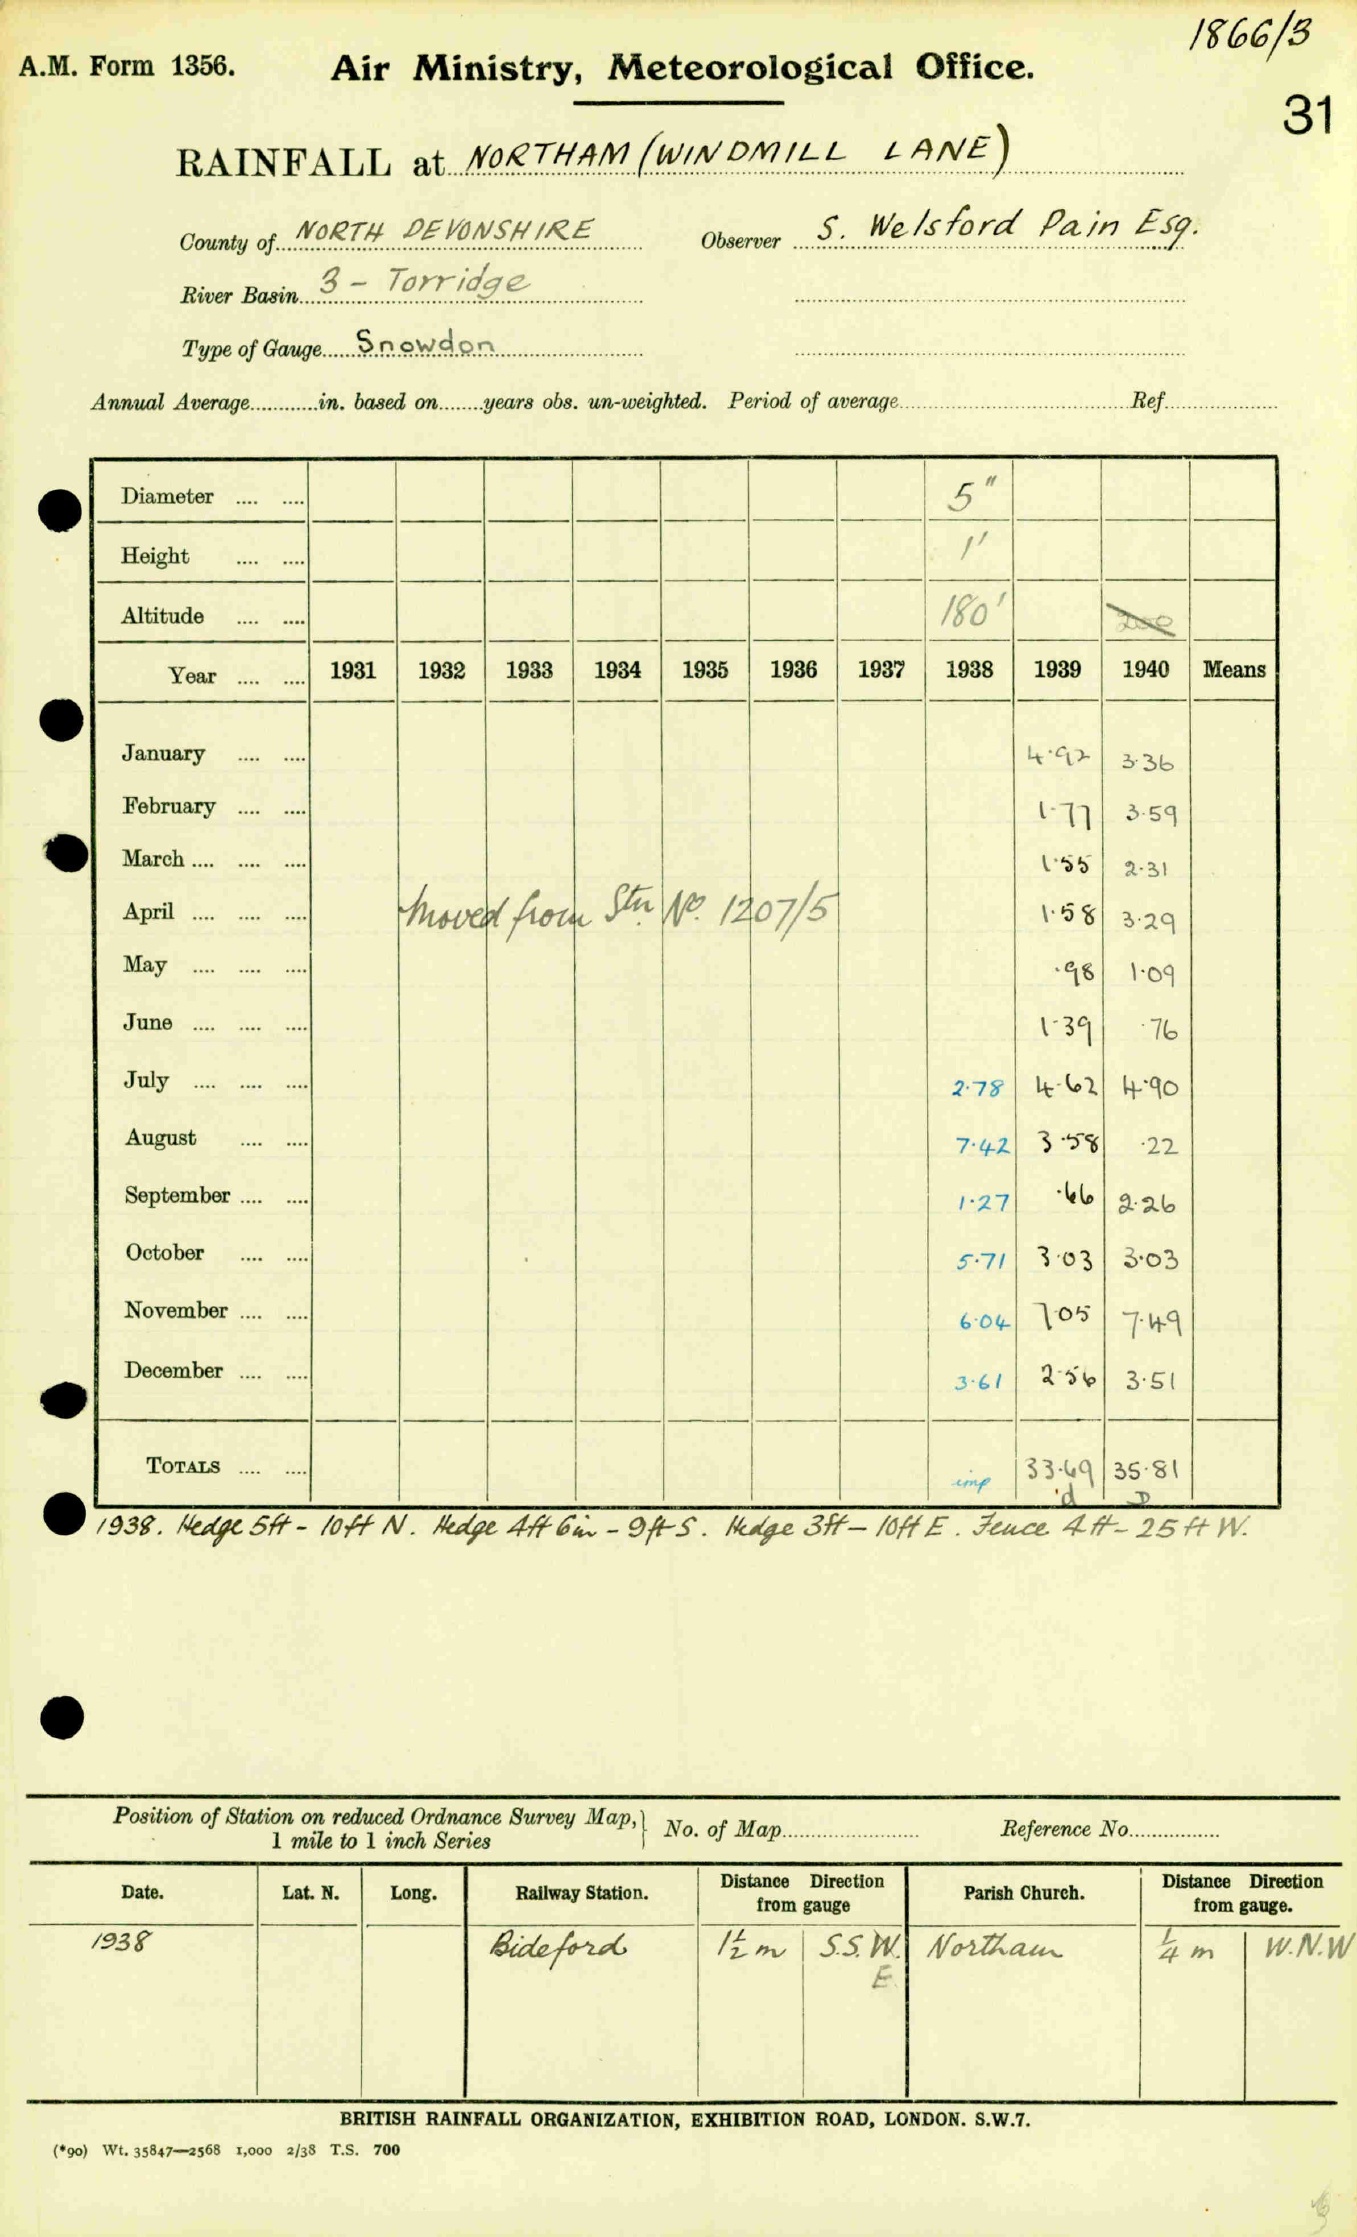 1866/3
A.M. Form 1356. Air Ministry, Meteorological Office.
31
RAINFALL at NORTHAM (WINDMILL LANE)
County of NORTH DEVONSHIRE Observer S. Welsford Pain Esq.
River Basin 3 - Torridge
Type of Gauge Snowdon
Annual Average in. based on years obs. un-weighted. Period of average Ref
Diameter 5"
Height 1'
Altitude 180' 200
Year 1931 1932 1933 1934 1935 1936 1937 1938 1939 1940 Means
January 4.92 3.36
February 1.77 3.59
March 1.55 2.31
April Moved from Stn. No. 1207/5 1.58 3.29
May .98 1.09
June 1.39 .76
July 2.78 4.62 4.90
August 7.42 3.58 .22
September 1.27 .66 2.26
October 5.71 3.03 3.03
November 6.04 7.05 7.49
December 3.61 2.56 3.51
TOTALS imp 33.69 35.81
d D
1938. Hedge 5ft - 10ft N. Hedge 4ft 6in - 9ft S. Hedge 3ft - 10ft E. Fence 4ft - 25ft W.
Position of Station on reduced Ordnance Survey Map, 1 mile to 1 inch Series } No. of Map Reference No.
Date. Lat. N. Long. Railway Station. Distance Direction from gauge Parish Church. Distance Direction from gauge.
1938 Bideford 1½ m S.S.W. Northam ¼ m W.N.W
E.
BRITISH RAINFALL ORGANIZATION, EXHIBITION ROAD, LONDON. S.W.7.
(*90) Wt. 35847—2568 1,000 2/38 T.S. 700